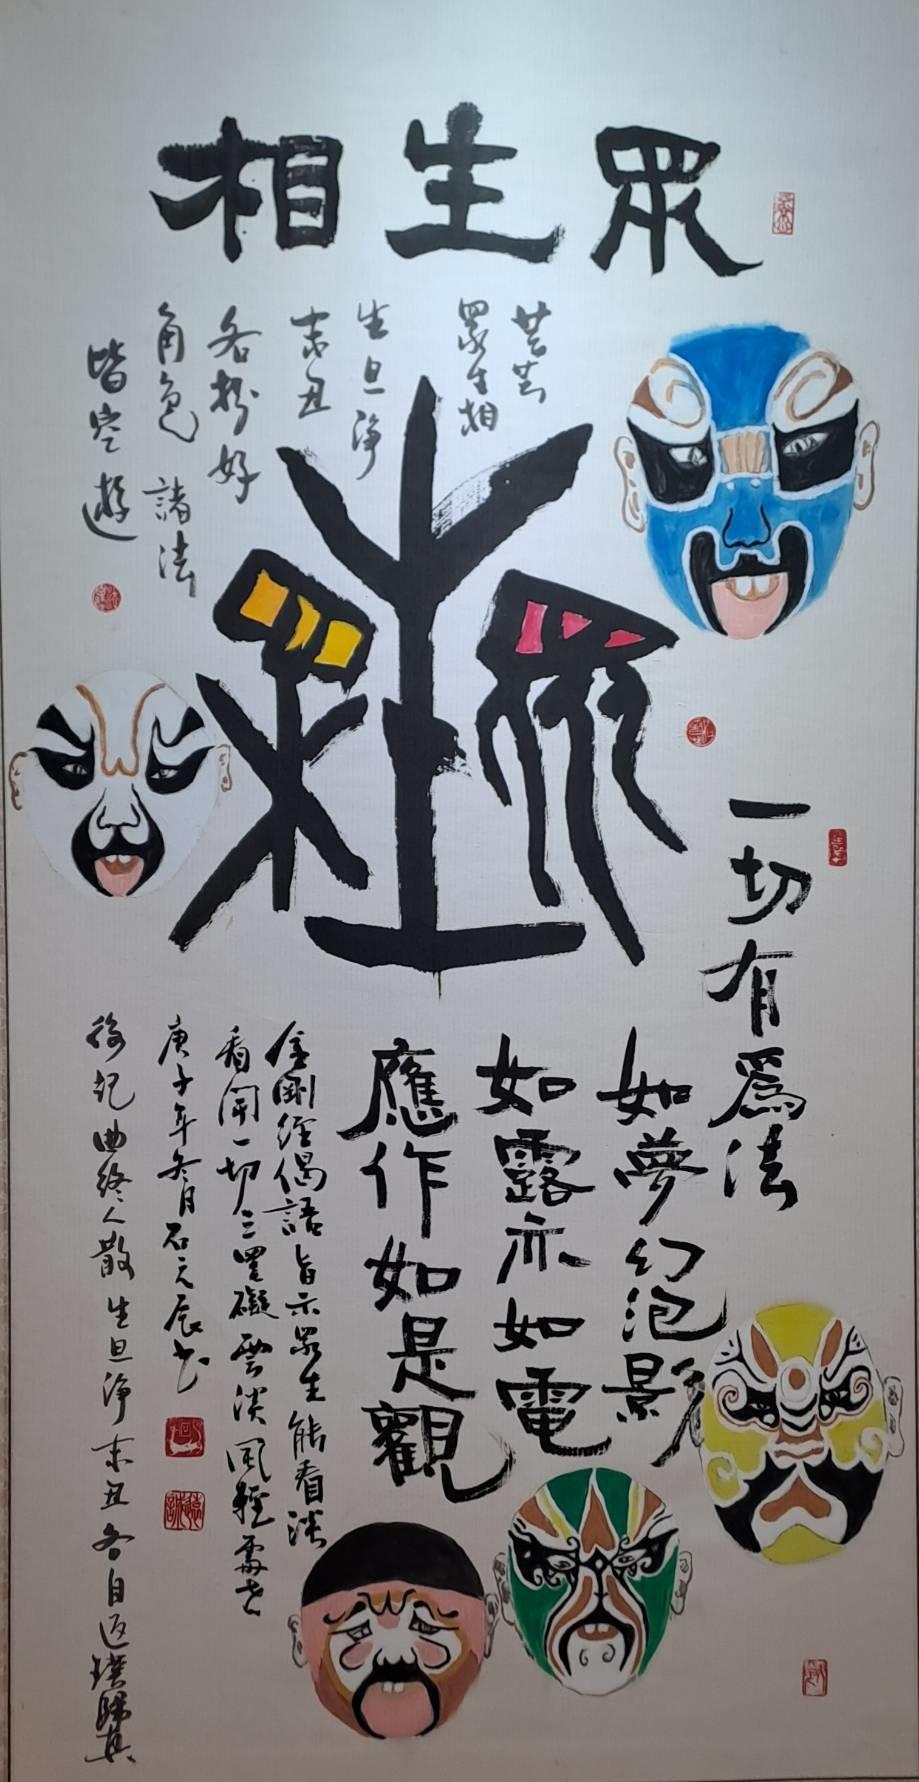 眾生相
芸芸
眾生相
生旦淨
末丑
各扮好
角色 諸法
皆空遊
一切有爲法
如夢幻泡影
如露亦如電
應作如是觀
金剛經偈語旨示眾生能看淡
看開一切三罣礙雲淡風輕處世
庚子年冬月石元辰書
後記曲終人散生旦淨末丑各自返璞歸真